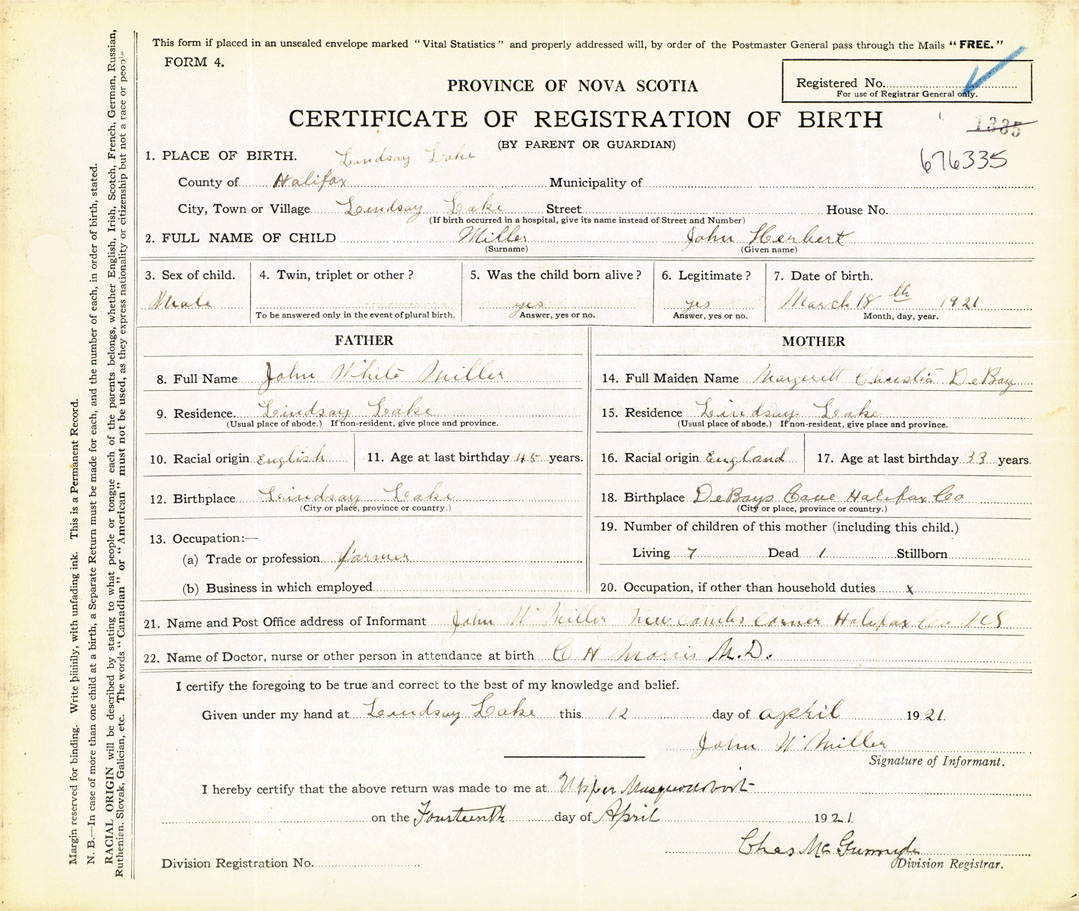 This form if placed in an unsealed envelope marked "Vital Statistics" and properly addressed will, by order of the Postmaster General pass through the Mails "FREE."
FORM 4.
Registered No.
For use of Registrar General only.
PROVINCE OF NOVA SCOTIA
CERTIFICATE OF REGISTRATION OF BIRTH
1335
(BY PARENT OR GUARDIAN)
676335
1. PLACE OF BIRTH. Lindsay Lake
County of Halifax Municipality of
City, Town or Village Lindsay Lake Street House No.
(If birth occurred in a hospital, give its name instead of Street and Number)
2. FULL NAME OF CHILD Miller John Herbert
(Surname) (Given name)
3. Sex of child. 4. Twin, triplet or other? 5. Was the child born alive? 6. Legitimate? 7. Date of birth.
Male yes yes March 18th 1921
To be answered only in the event of plural birth. Answer, yes or no. Answer, yes or no. Month, day, year.
FATHER MOTHER
8. Full Name John White Miller 14. Full Maiden Name Margerett Christia DeBay
9. Residence. Lindsay Lake 15. Residence Lindsay Lake
(Usual place of abode.) If non-resident, give place and province. (Usual place of abode.) If non-resident, give place and province.
10. Racial origin English 11. Age at last birthday 45 years. 16. Racial origin England 17. Age at last birthday 33 years.
12. Birthplace Lindsay Lake 18. Birthplace DeBays Cove Halifax Co
(City or place, province or country.) (City or place, province or country.)
13. Occupation:— 19. Number of children of this mother (including this child.)
(a) Trade or profession farmer Living 7 Dead 1 Stillborn
(b) Business in which employed 20. Occupation, if other than household duties x
21. Name and Post Office address of Informant John W Miller Newcombs Corner Halifax Co NS
22. Name of Doctor, nurse or other person in attendance at birth C H Morris M.D.
I certify the foregoing to be true and correct to the best of my knowledge and belief.
Given under my hand at Lindsay Lake this 12 day of april 1921.
John W Miller
Signature of Informant.
I hereby certify that the above return was made to me at Upper Musquodoboit
on the Fourteenth day of April 1921
Chas
Division Registration No. Division Registrar.
Margin reserved for binding. Write plainly, with unfading ink. This is a Permanent Record.
N. B.—In case of more than one child at a birth, a Separate Return must be made for each, and the number of each, in order of birth, stated.
RACIAL ORIGIN will be described by stating to what people or tongue each of the parents belongs, whether English, Irish, Scotch, French, German, Russian,
Ruthenian, Slovak, Galician, etc. The words "Canadian" or "American" must not be used, as they express nationality or citizenship but not a race or people